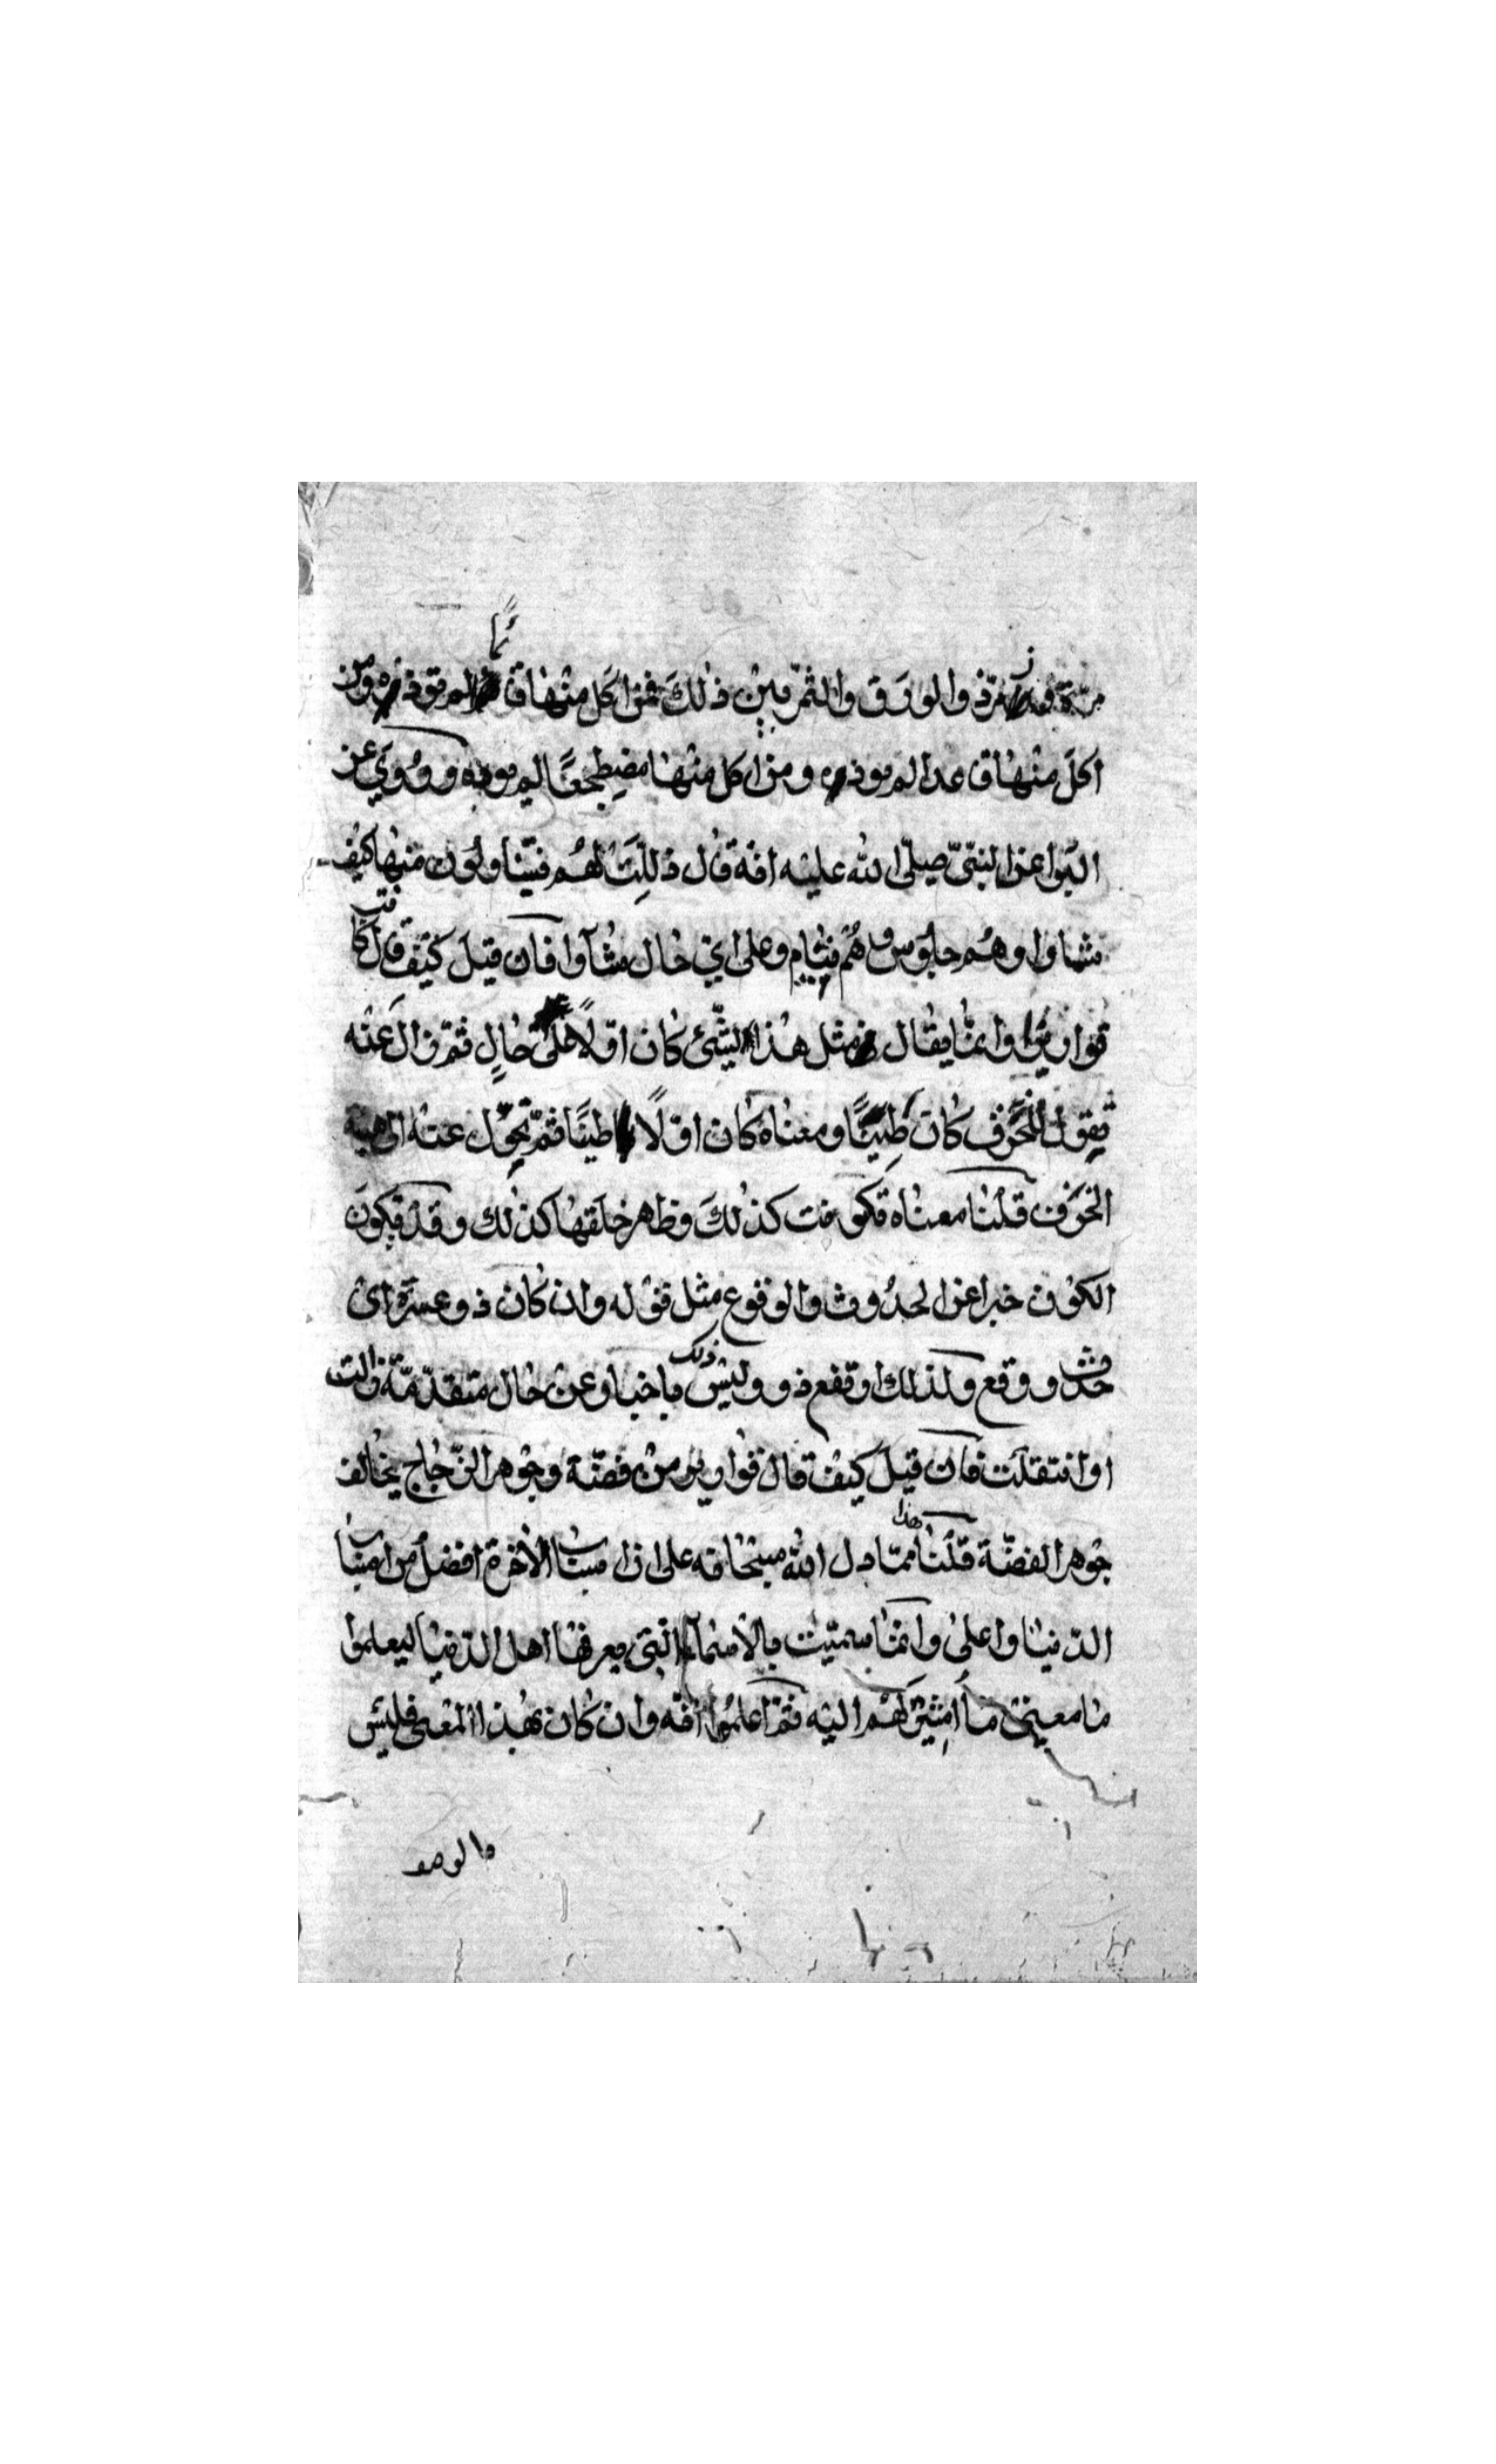 وزبرجد والورق والثمر بين ذلك فمن اكل منها قائما لم تؤذه ومن
اكل منها قاعدا لم تؤذه ومن اكل منها مضطجعًا لم تؤذه وروي عن
البراء عن النبيّ صلّى الله عليه انّه قال ذلّلت لهم فيتناولون منها كيف
شاوا وهم جلوس وهم نيام وعلى ايّ حال شآوا فان قيل كيف قال كانت
قوارير وانّما يقال مثل هذا لشئ كان اوّلًا على حالٍ ثمّ زال عنه
يقول الخزف كان طينًا ومعناه كان اوّلًا طينًا ثمّ تحوّل عنه الى هيئة
الخزف قلنا معناه تكوّنت كذلك وظاهر خلقها كذلك وقد يكون
الكون خبرا عن الحدوث والوقوع مثل قوله وان كان ذو عسرة اى
حدث ووقع ولذلك ارتفع ذو وليس ذلك باخبار عن حال متقدّمة زالت
او انتقلت فان قيل كيف قال قوارير من فضّة وجوهر الزّجاج يخالف
جوهر الفضّة قلنا هذا ممّا دل الله سبحانه على ان اسباب الآخرة افضل من اسباب
الدّنيا واعلى وانّما سمّيت بالاسمآء الّتى يعرفها اهل الدّنيا ليعلموا
ما معنى ما اشير لهم اليه ثمّ اعلموا انّه وان كان بهذا المعنى فليس